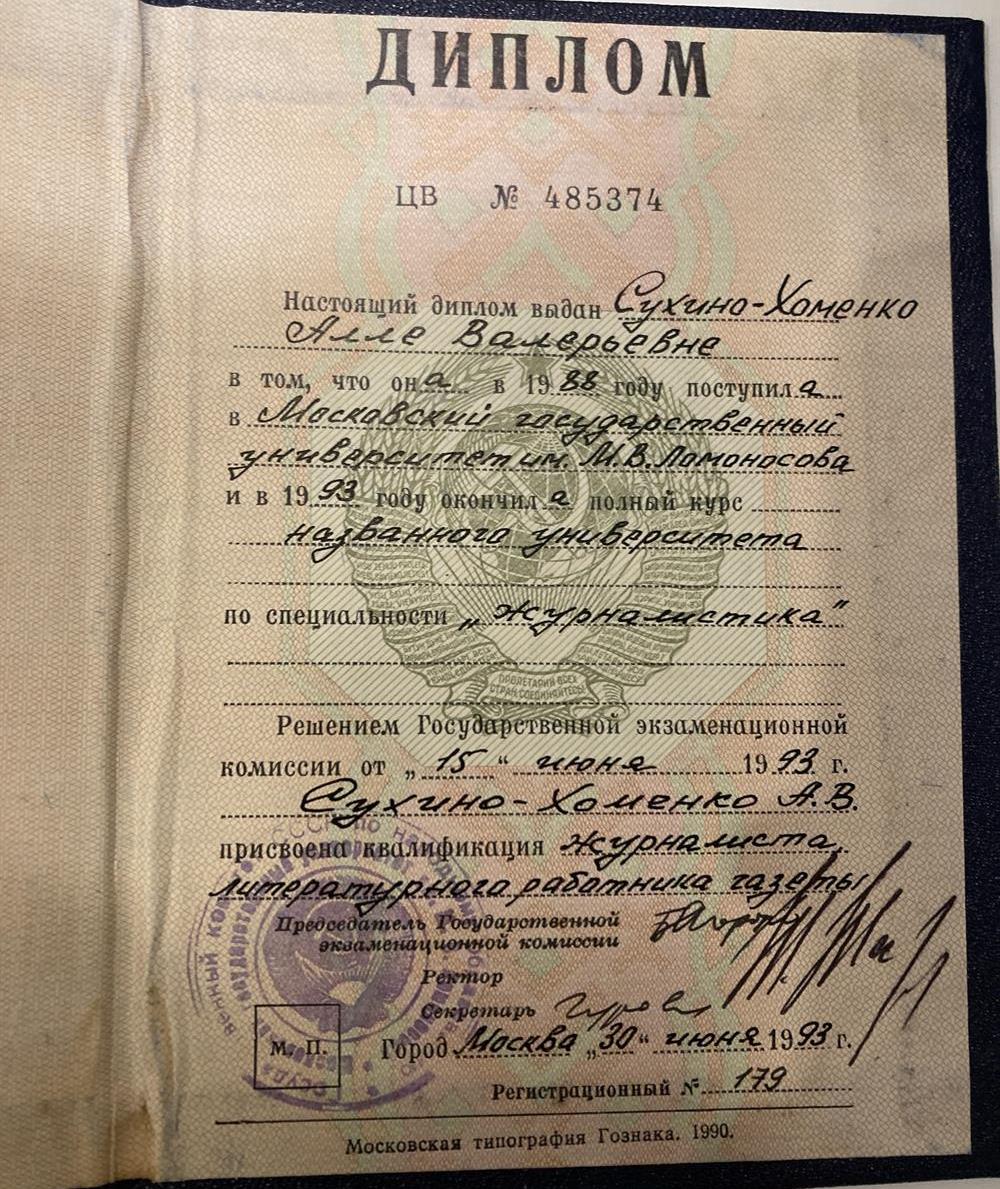 ДИПЛОМ
ЦВ № 485374
Настоящий диплом выдан Сухино-Хоменко
Алле Валерьевне
в том, что она в 1988 году поступила
в Московский государственный
университет им. М.В. Ломоносова
и в 1993 году окончила полный курс
названного университета
по специальности „журналистика"
ПРОЛЕТАРИИ ВСЕХ
СТРАН, СОЕДИНЯЙТЕСЬ!
Решением Государственной экзаменационной
комиссии от „15“ июня 1993 г.
Сухино-Хоменко А.В.
присвоена квалификация журналиста,
литературного работника газеты
Председатель Государственной
экзаменационной комиссии
Ректор
Секретарь
М. П.
Город Москва „30“ июня 1993 г.
Регистрационный № 179
Московская типография Гознака. 1990.